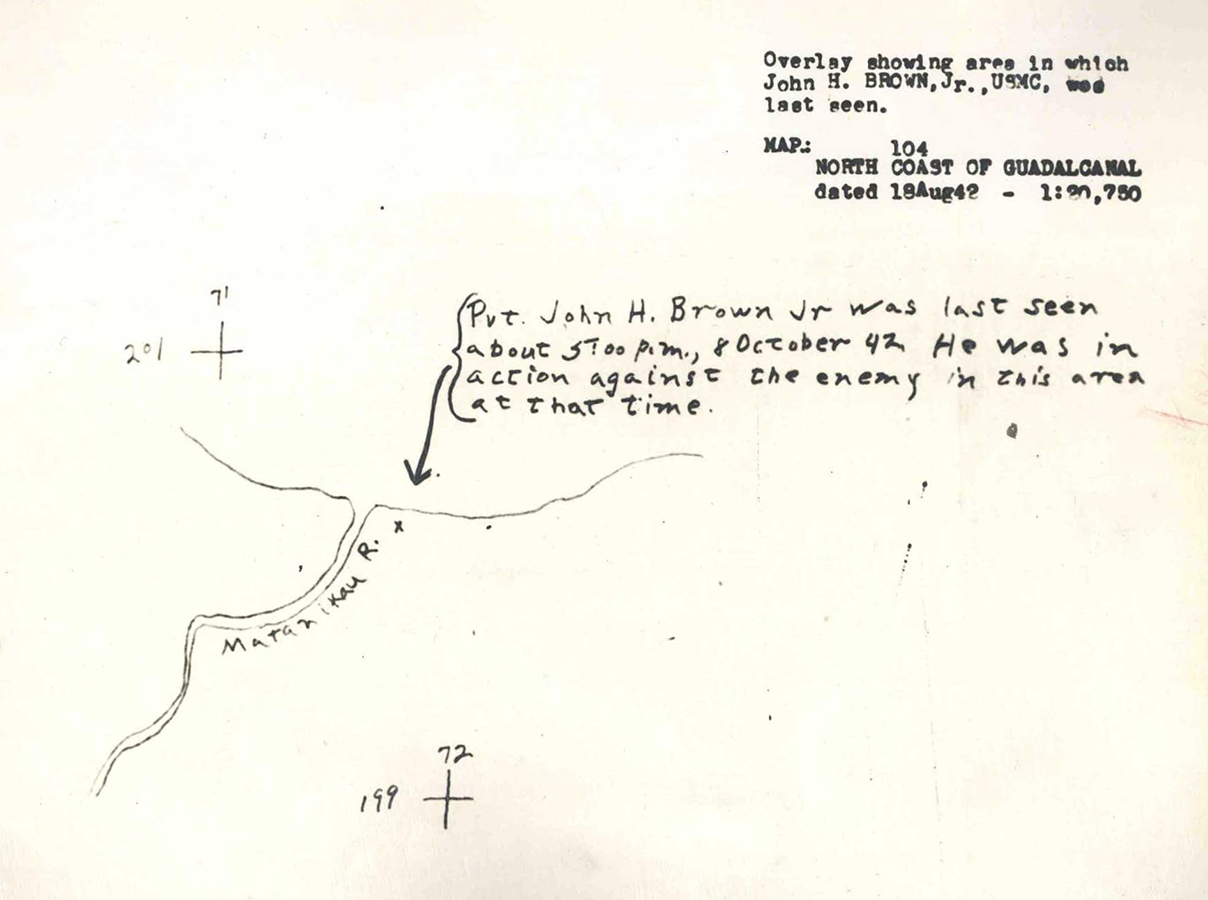 Overlay showing area in which
John H. BROWN,Jr.,USMC, was
last seen.
MAP: 104
NORTH COAST OF GUADALCANAL
dated 18Aug42 - 1:20,750
71
201
Pvt. John H. Brown Jr was last seen
about 5:00 p.m., 8 October 42 He was in
action against the enemy in this area
at that time.
x
Matanikau R.
72
199